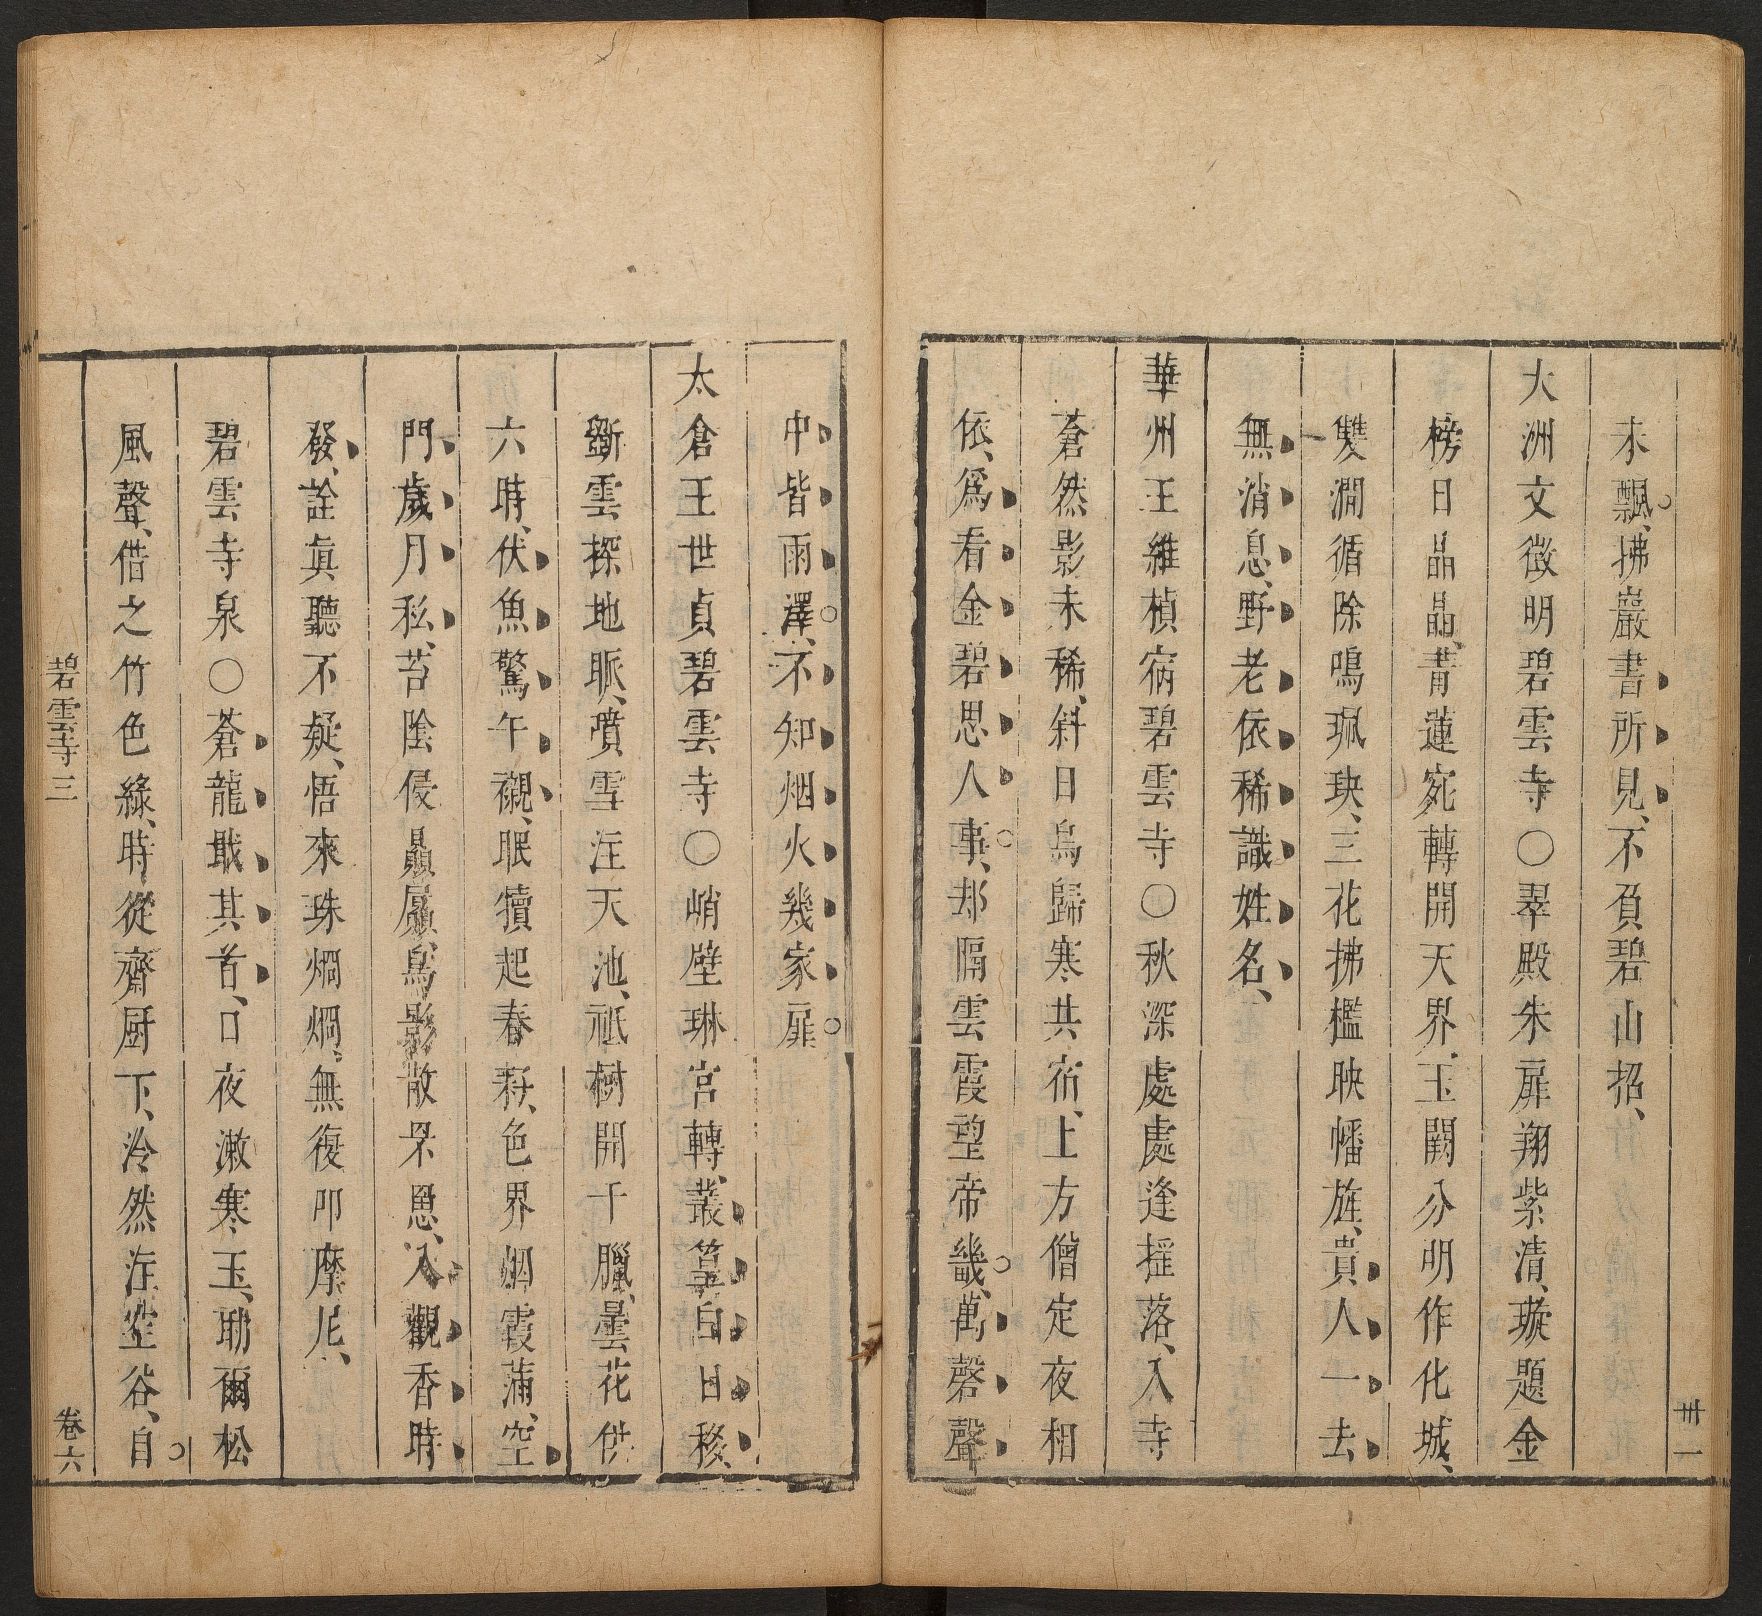 卅一
未飄、拂巖書所見、不負碧山招、
大洲文徵明碧雲寺○翠殿朱扉翔紫清、璇題金
榜日晶晶、青蓮宛轉開天界、玉闕分明作化城、
雙澗循除鳴珮玦、三花拂檻映幡旌、貴人一去
無消息、野老依稀識姓名、
華州王維楨宿碧雲寺○秋深處處逢搖落、入寺
蒼然影未稀、斜日烏歸寒共宿、上方僧定夜相
依、爲看金碧思人事、却隔雲霞望帝畿、萬磬聲
中皆雨澤、不知烟火幾家扉
太倉王世貞碧雲寺○峭壁琳宮轉、叢篁白日移、
斷雲探地脈、噴雪注天池、祗樹開千臘、曇花供
六時、伏魚驚午襯、眠犢起春、色界烟霞滿、空
門歲月私、苔陰侵贔屭、鳥影散罘罳、入觀香時
發、詮真聽不疑、悟來珠烱烱、無復叩摩尼、
碧雲寺泉○蒼龍戢其首、日夜漱寒玉、聊爾松
風聲、借之竹色綠、時從齋厨下、泠然注空谷、自
碧雲寺三 卷六